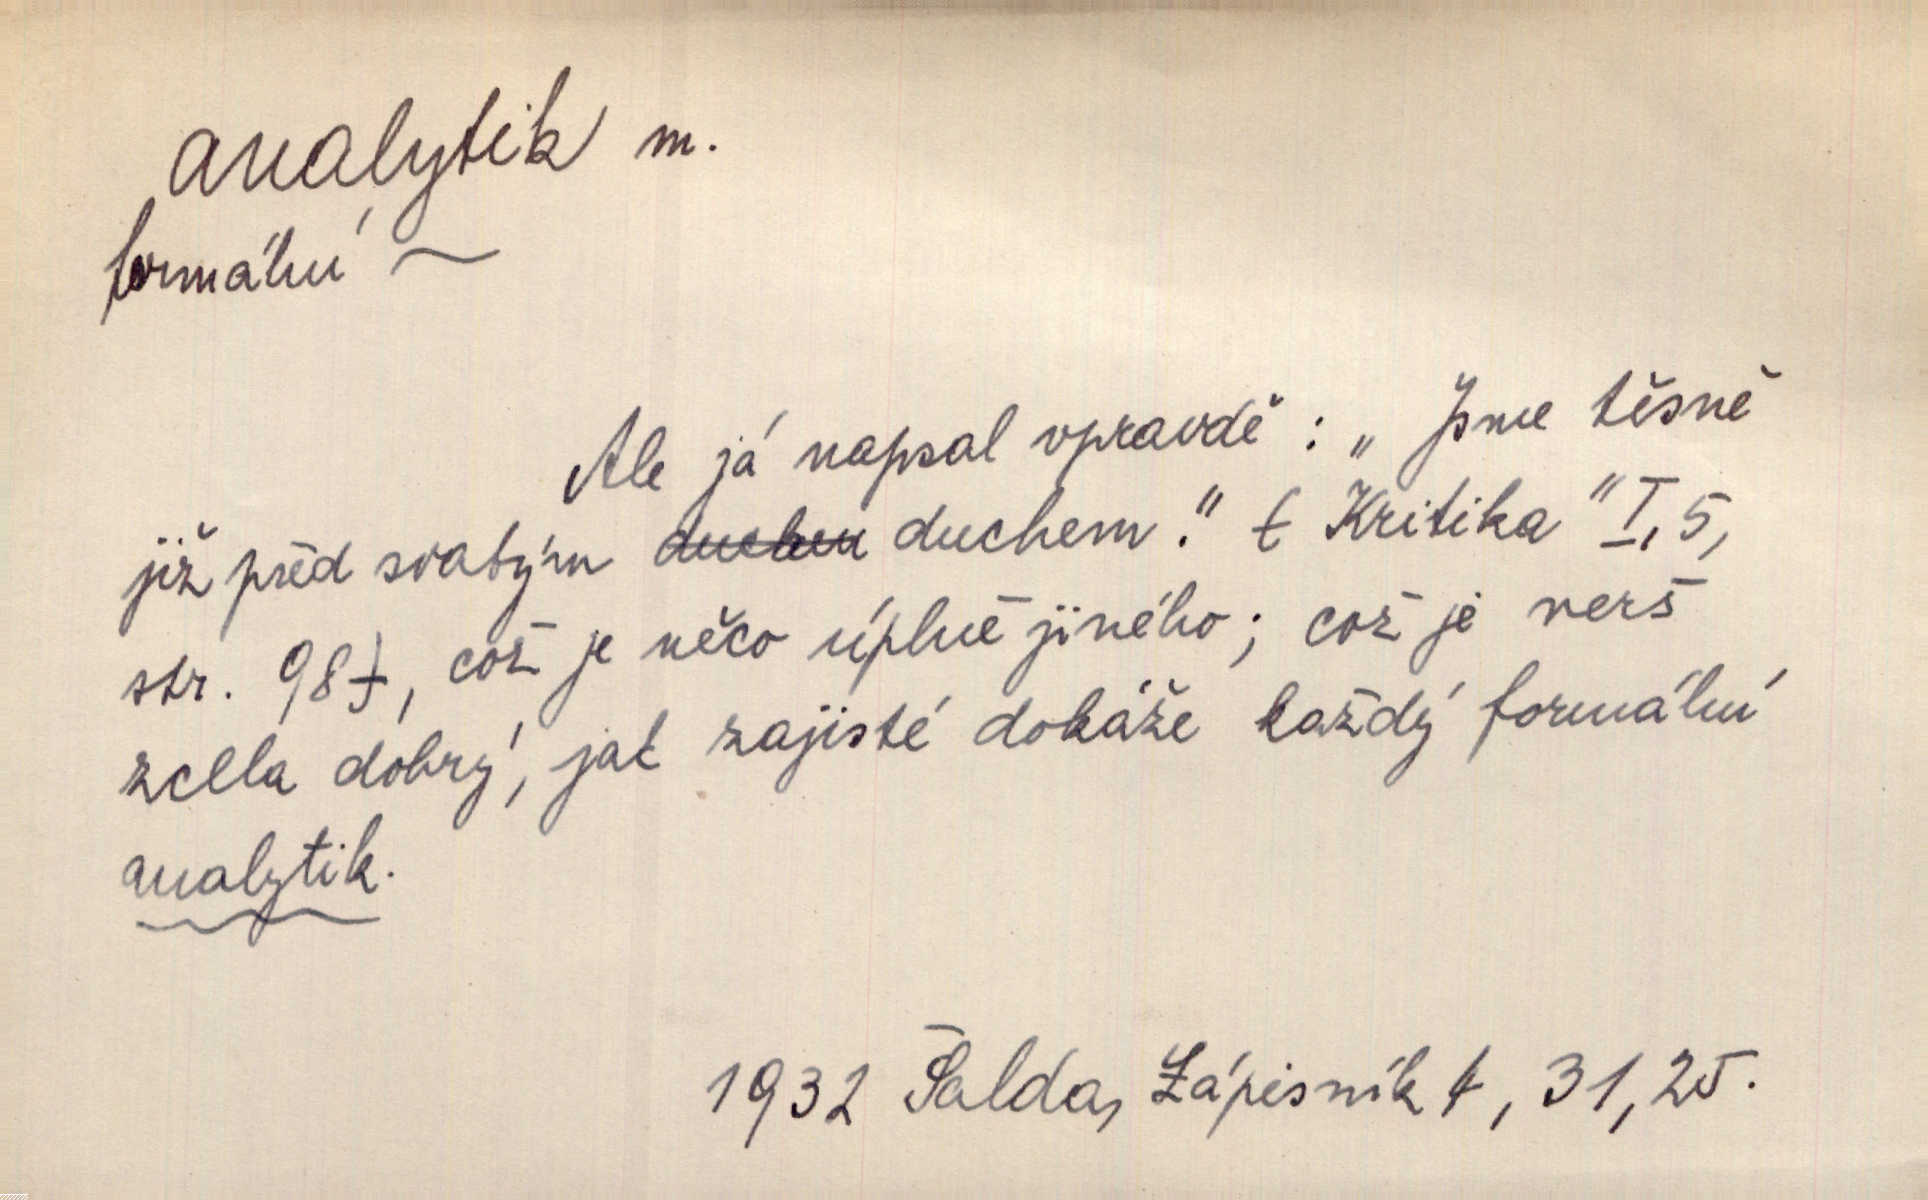 analytik m.
formální ~
Ale já napsal vpravdě: „Jsme těsně
již před svatým duchem." ( Kritika " I, 5,
str. 98), což je něco úplně jiného; což je verš
zcela dobrý, jak zajisté dokáže každý formální
analytik.
1932 Šalda, Zápisník 4, 31, 25.